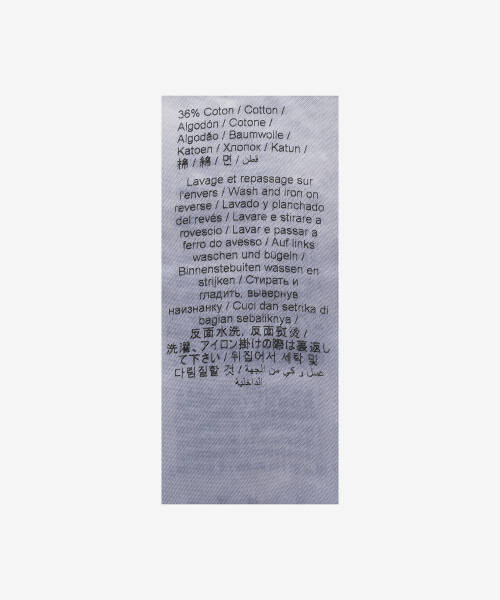 36% Coton / Cotton /
Algodón / Cotone /
Algodão / Baumwolle /
Katoen / Хлопок / Katun /
棉 / 綿 / 면 / قطن
Lavage et repassage sur
l'envers / Wash and iron on
reverse / Lavado y planchado
del revés / Lavare e stirare a
rovescio / Lavar e passar a
ferro do avesso / Auf links
waschen und bügeln /
Binnenstebuiten wassen en
strijken / Стирать и
гладить, вывернув
наизнанку / Cuci dan setrika di
bagian sebaliknya /
反面水洗, 反面熨烫 /
洗濯、アイロン掛けの際は裏返し
て下さい / 뒤집어서 세탁 및
다림질할 것 / غسل و كي من الجهة
الداخلية